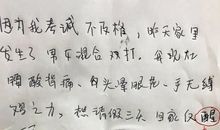 因为我考试不及格，昨天家里
发生了男女混合双打，并现在
腰酸背痛、白光晕眼花、手无缚
鸡之力，想请假三天回家仅醒